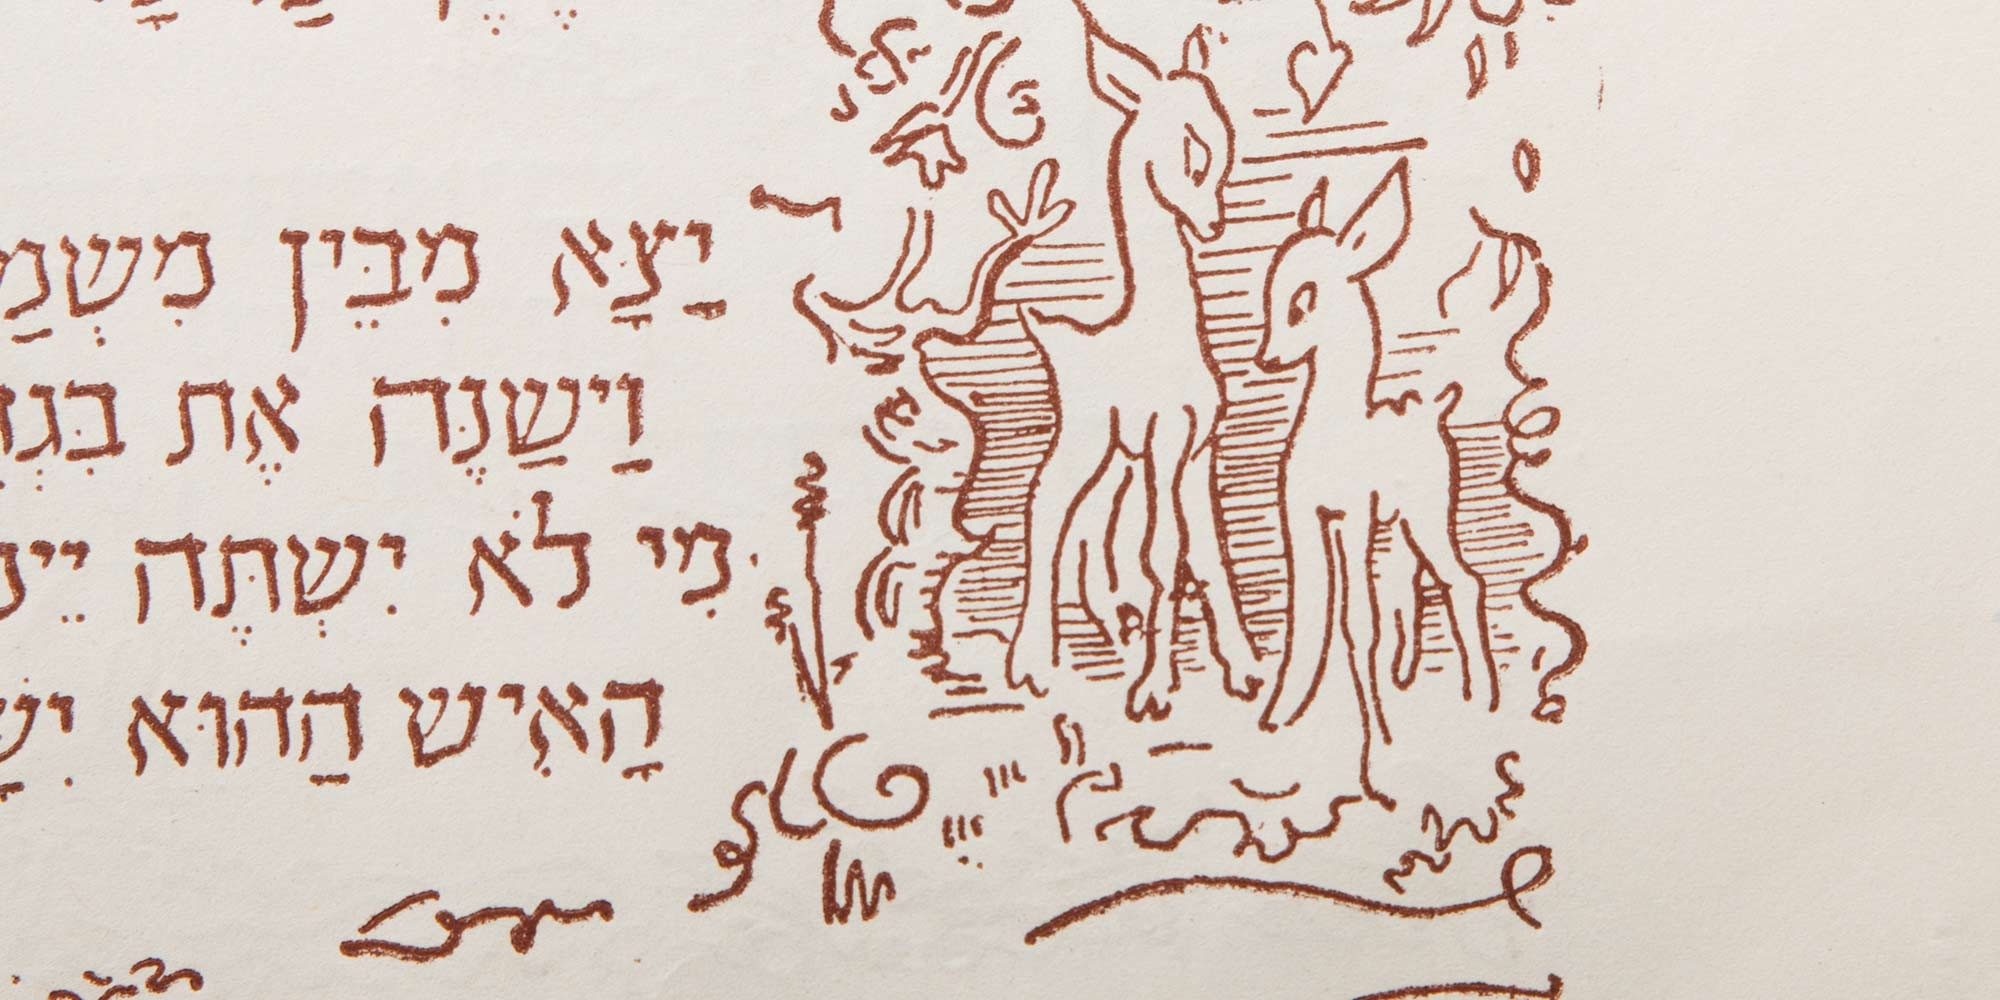 יָצָא מִבֵּין
וַיְשַׁנֶּה אֶת
מִי לֹא יִשְׁתֶּה
הָאִישׁ הַהוּא